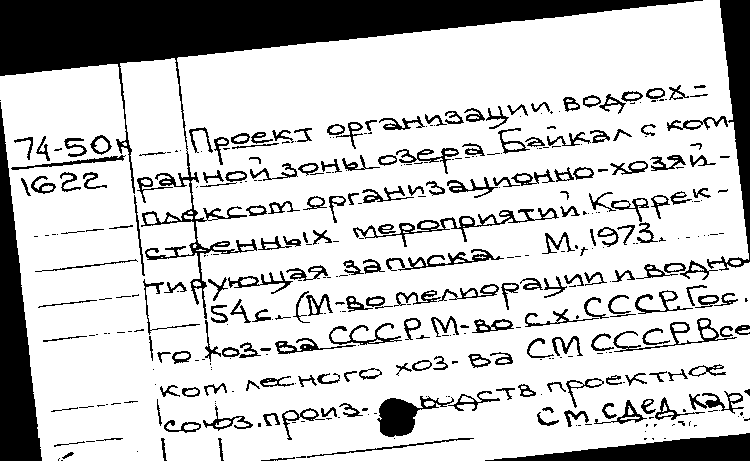 74-50к
1622
Проект организации водоох-
ранной зоны озера Байкал с ком-
плексом организационно-хозяй-
ственных мероприятий. Коррек-
тирующая записка. М., 1973.
54 с. (М-во мелиорации и водно-
го хоз-ва СССР. М-во с.х. СССР. Гос.
ком. лесного хоз-ва СМ СССР. Все
союз. произ. водств. проектное
См. след. карт